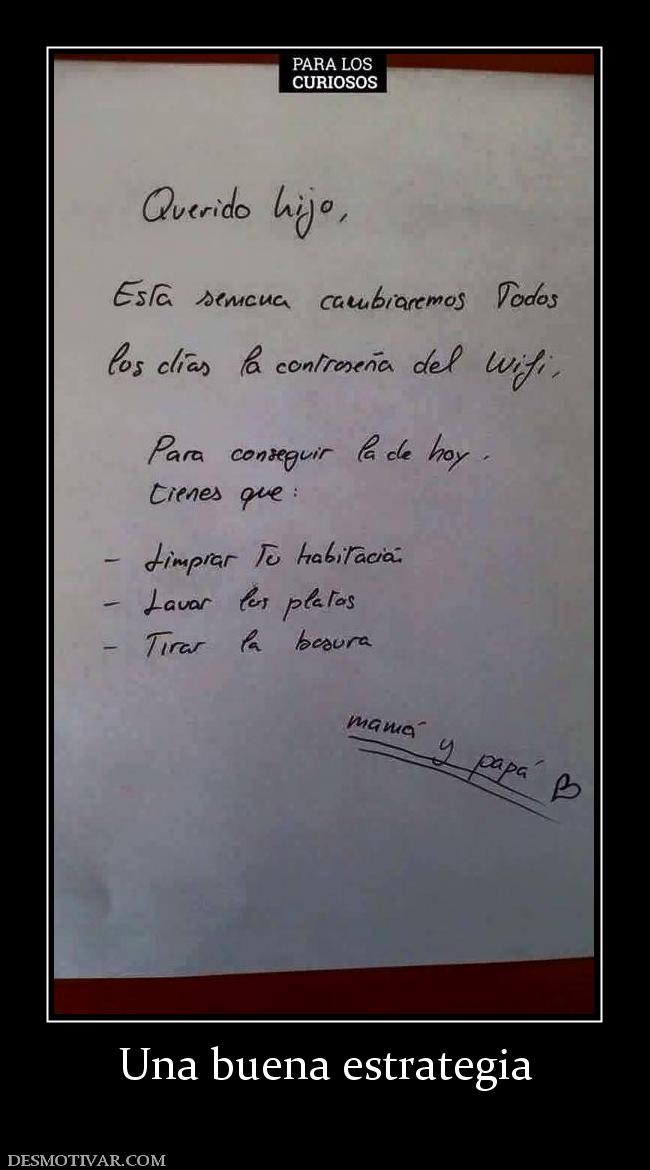 PARA LOS
CURIOSOS
Querido hijo,
Esta semana cambiaremos Todos
los días la contraseña del Wifi,
Para conseguir la de hoy.
tienes que:
- Limpiar Tu habitación
- Lavar los platos
- Tirar la basura
mamá y papá
Una buena estrategia
DESMOTIVAR.COM